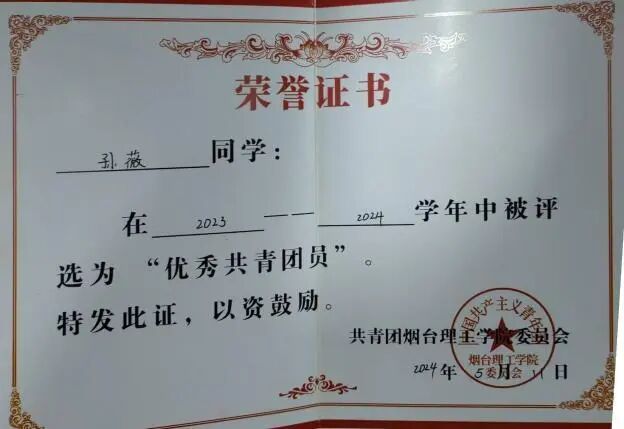 荣誉证书
孙薇 同学：
在 2023 —— 2024 学年中被评
选为“优秀共青团员”。
特发此证，以资鼓励。
共青团烟台理工学院委员会
2024年 5月 11日
中国共产主义青年团
烟台理工学院
委员会